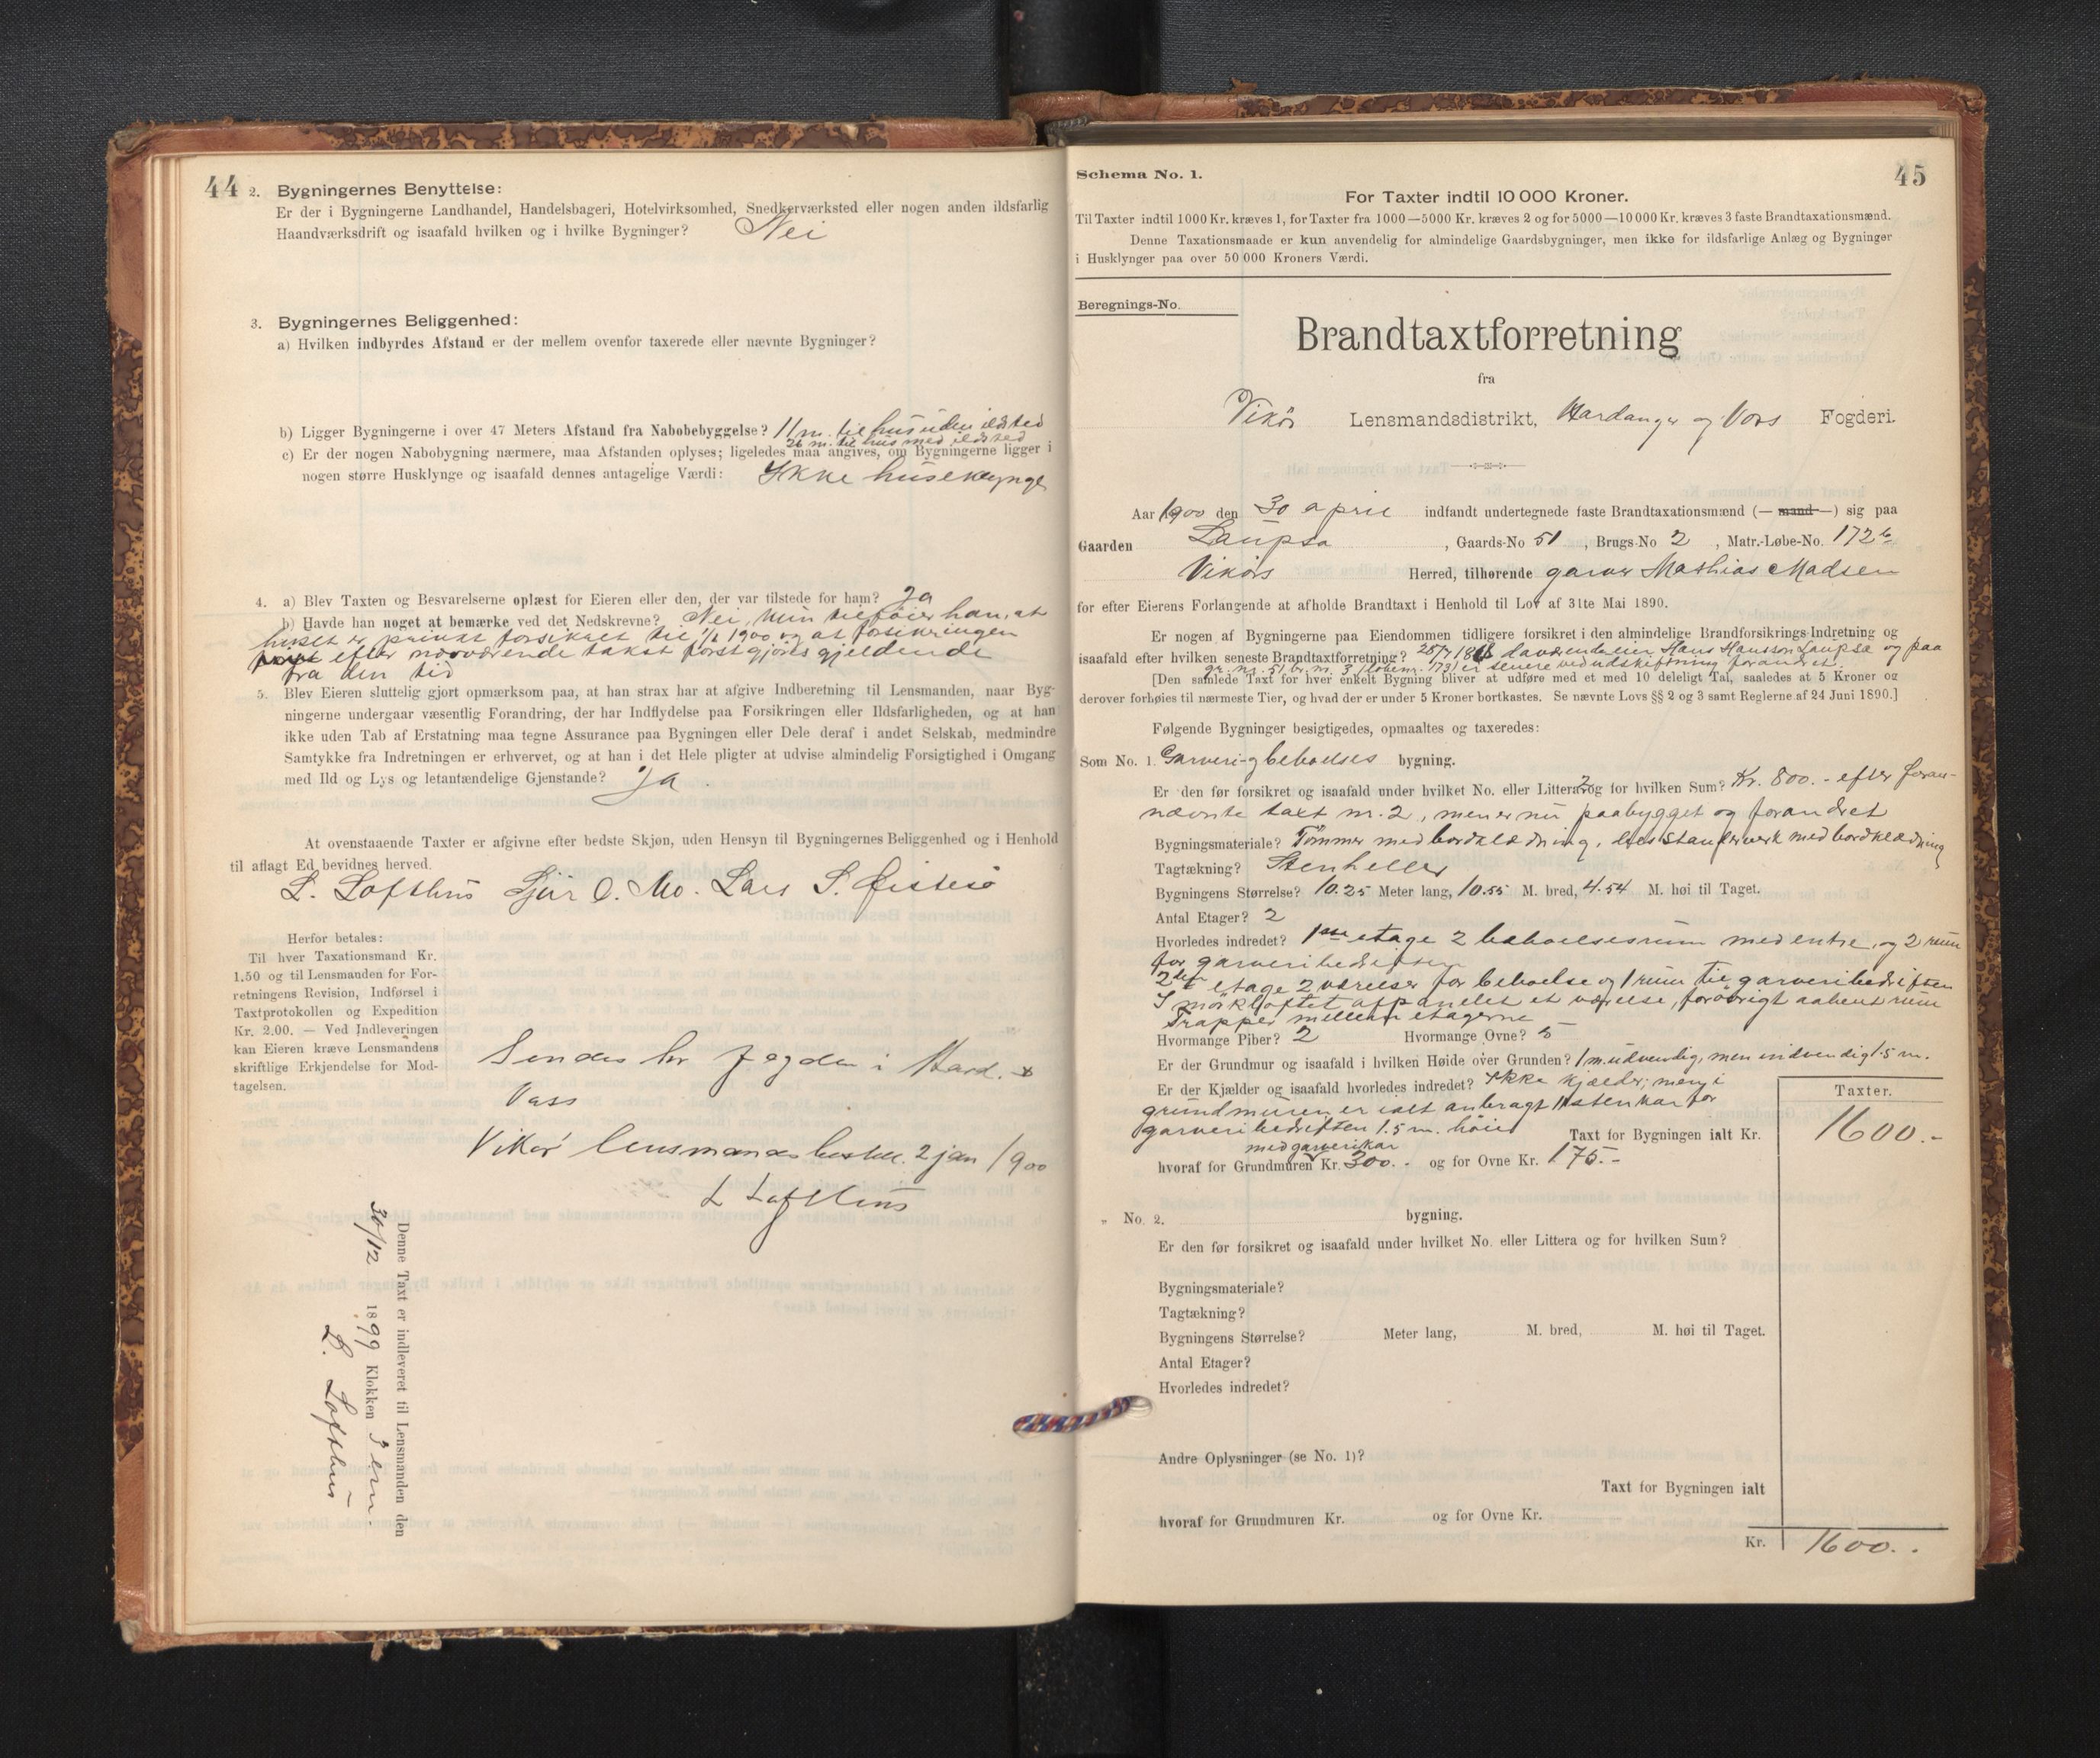 44
2. Bygningernes Benyttelse:
Er der i Bygningerne Landhandel, Handelsbageri, Hotelvirksomhed, Snedkerværksted eller nogen anden ildsfarlig
Haandværksdrift og isaafald hvilken og i hvilke Bygninger? Nei
3. Bygningernes Beliggenhed:
a) Hvilken indbyrdes Afstand er der mellem ovenfor taxerede eller nævnte Bygninger?
b) Ligger Bygningerne i over 47 Meters Afstand fra Nabobebyggelse? 11 m. til hus uden ildsted
26 m. til hus med ildsted
c) Er der nogen Nabobygning nærmere, maa Afstanden oplyses; ligeledes maa angives, om Bygningerne ligger i
nogen større Husklynge og isaafald dennes antagelige Værdi: Ikke huseklynge
4. a) Blev Taxten og Besvarelserne oplæst for Eieren eller den, der var tilstede for ham? Ja
b) Havde han noget at bemærke ved det Nedskrevne? Nei, men tilføier han, at
huset er privat forsikret til 1900 og at forsikringen
efter nærværende takst først gjøres gjeldende
fra den tid
5. Blev Eieren sluttelig gjort opmærksom paa, at han strax har at afgive Indberetning til Lensmanden, naar Byg-
ningerne undergaar væsentlig Forandring, der har Indflydelse paa Forsikringen eller Ildsfarligheden, og at han
ikke uden Tab af Erstatning maa tegne Assurance paa Bygningen eller Dele deraf i andet Selskab, medmindre
Samtykke fra Indretningen er erhvervet, og at han i det Hele pligter at udvise almindelig Forsigtighed i Omgang
med Ild og Lys og letantændelige Gjenstande? Ja.
At ovenstaaende Taxter er afgivne efter bedste Skjøn, uden Hensyn til Bygningernes Beliggenhed og i Henhold
til aflagt Ed bevidnes herved.
L. Lofthus Sjur O. Mo. Lars S. Øistesø
Herfor betales:
Til hver Taxationsmand Kr.
1.50 og til Lensmanden for For-
retningens Revision, Indførsel i
Taxtprotokollen og Expedition
Kr. 2.00. — Ved Indleveringen
kan Eieren kræve Lensmandens
skriftlige Erkjendelse for Mod-
tagelsen.
Sendes hr fogden i Hard. &
Voss
Vikør lensmandsbestill. 2 jan 1900
L Lofthus
Denne Taxt er indleveret til Lensmanden den
30/12 1899 Klokken 3 em.
L. Lofthus
45
Schema No. 1.
For Taxter indtil 10 000 Kroner.
Til Taxter indtil 1000 Kr. kræves 1, for Taxter fra 1000—5000 Kr. kræves 2 og for 5000—10 000 Kr. kræves 3 faste Brandtaxationsmænd.
Denne Taxationsmaade er kun anvendelig for almindelige Gaardsbygninger, men ikke for ildsfarlige Anlæg og Bygninger
i Husklynger paa over 50 000 Kroners Værdi.
Beregnings-No.
Brandtaxtforretning
fra
Vikör Lensmandsdistrikt, Hardanger og Vors Fogderi.
Aar 1900 den 30 april indfandt undertegnede faste Brandtaxationsmænd (— mand —) sig paa
Gaarden Laupsa, Gaards-No 51, Brugs-No 2, Matr.-Løbe-No. 172b
Vikörs Herred, tilhørende garver Mathias Madsen
for efter Eierens Forlangende at afholde Brandtaxt i Henhold til Lov af 31te Mai 1890.
Er nogen af Bygningerne paa Eiendommen tidligere forsikret i den almindelige Brandforsikrings-Indretning og
isaafald efter hvilken seneste Brandtaxtforretning? 25/7 daværende eier Hans Hansson Laupsa og paa
gr. nr. 51 br. nr. 3 (löbenr. 173) er senere ved udskiftning forandret.
[Den samlede Taxt for hver enkelt Bygning bliver at udføre med et med 10 deleligt Tal, saaledes at 5 Kroner og
derover forhøies til nærmeste Tier, og hvad der er under 5 Kroner bortkastes. Se nævnte Lovs §§ 2 og 3 samt Reglerne af 24 Juni 1890.]
Følgende Bygninger besigtigedes, opmaaltes og taxeredes:
Som No. 1. Garveri- og beboelses bygning.
Er den før forsikret og isaafald under hvilket No. eller Littera og for hvilken Sum? Kr. 800.- efter foran-
nævnte taxt nr. 2, men er nu paabygget og forandret
Bygningsmateriale? Tömmer med bordklædning, dels Standerverk med bordklædning
Tagtækning? Stenheller
Bygningens Størrelse? 10.25 Meter lang, 10.55 M. bred, 4.54 M. høi til Taget.
Antal Etager? 2
Hvorledes indredet? 1ste etage 2 beboelsesrum med entre, og 2 rum
for garveribedriften
2den etage 2 værelser for beboelse og 1 rum til garveribedriften
I mörkloftet afpanelet et værelse, forövrigt aabent rum
Trapper mellem etagerne
Hvormange Piber? 2 Hvormange Ovne? 5
Er der Grundmur og isaafald i hvilken Høide over Grunden? 1 m. udvendig, men indvendig 1.5 m.
Er der Kjælder og isaafald hvorledes indredet? Ikke kjælder; men i
grundmuren er ialt anbragt 11 stenkar for
garveribedriften 1.5 m. höie
Taxter.
Taxt for Bygningen ialt Kr. 1600.-
med garverikar
hvoraf for Grundmuren Kr. 300.- og for Ovne Kr. 175.-
" No. 2. bygning.
Er den før forsikret og isaafald under hvilket No. eller Littera og for hvilken Sum?
Bygningsmateriale?
Tagtækning?
Bygningens Størrelse? Meter lang, M. bred, M. høi til Taget.
Antal Etager?
Hvorledes indredet?
Andre Oplysninger (se No. 1)?
Taxt for Bygningen ialt
hvoraf for Grundmuren Kr. og for Ovne Kr.
Kr. 1600.-